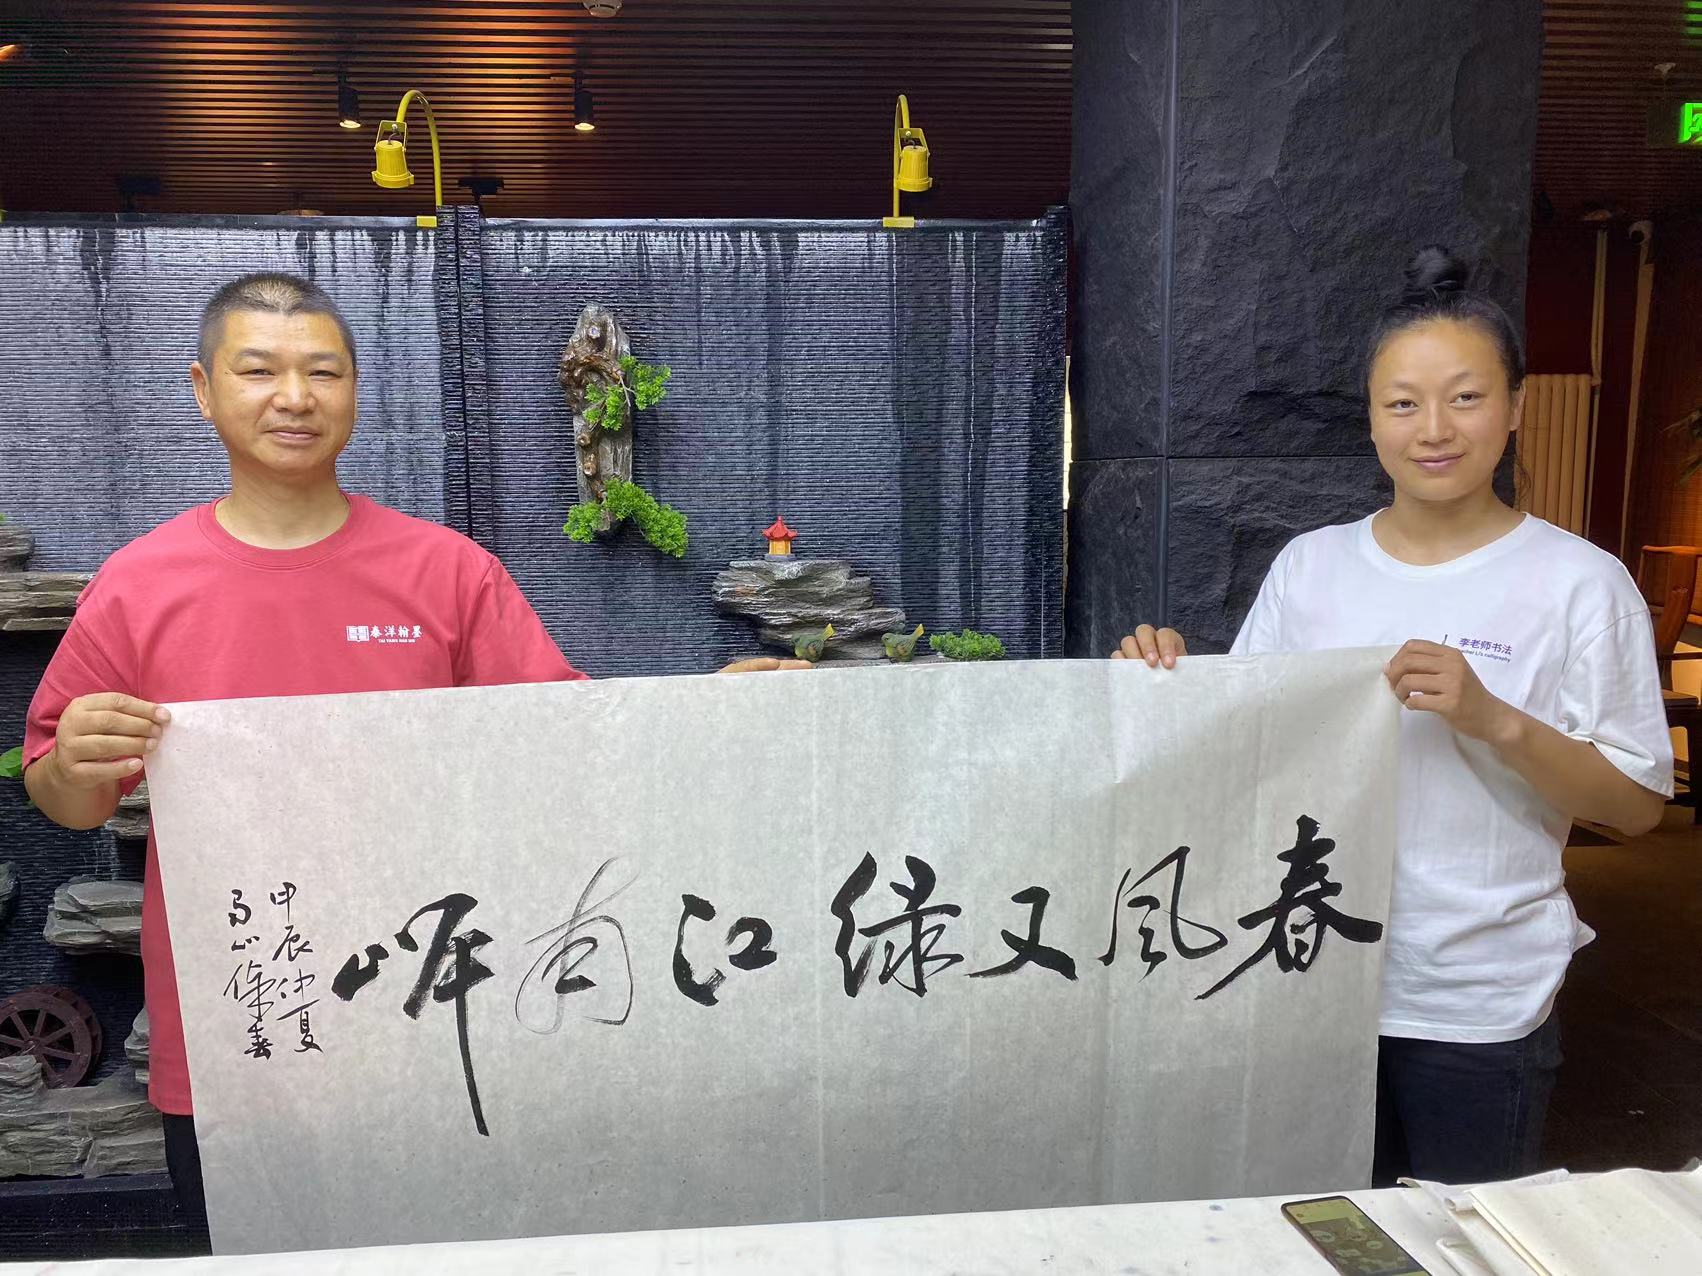 春风又绿江南岸
甲辰仲夏
泰洋翰墨
TAI YANG HAN MO
李老师书法
acher Li's calligraphy